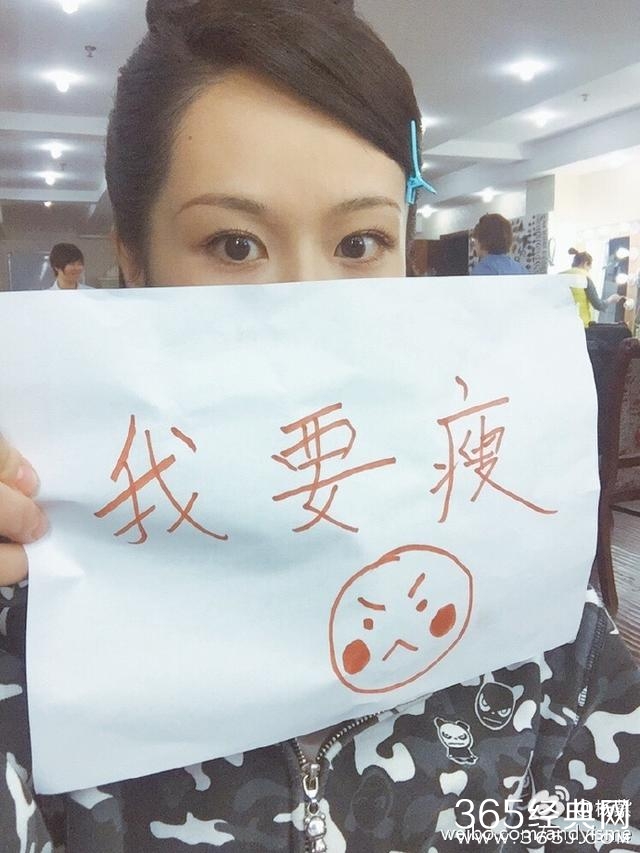 我要瘦
365经典网
www.365JX.COM